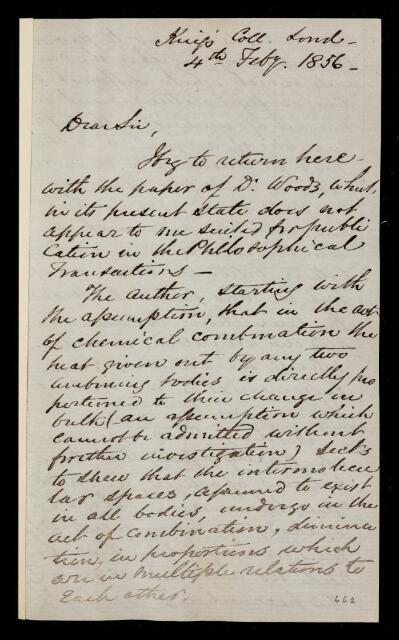 King's Coll. Lond -
4th Feby. 1856 -
Dear Sir,
I beg to return here-
with the paper of Dr. Woods, which
in its present state does not
appear to me suited for publi
cation in the Philosophical
Transactions -
The author, starting with
the assumption, that in the act
of chemical combination the
heat given out by any two
combining bodies is directly pro
portioned to their change in
bulk (an assumption which
cannot be admitted without
further investigation) seeks
to shew that the intermolecu
lar spaces, assumed to exist
in all bodies, undergo in the
act of combination, diminu
tion, in proportions which
are in multiple relations to
each other.
662